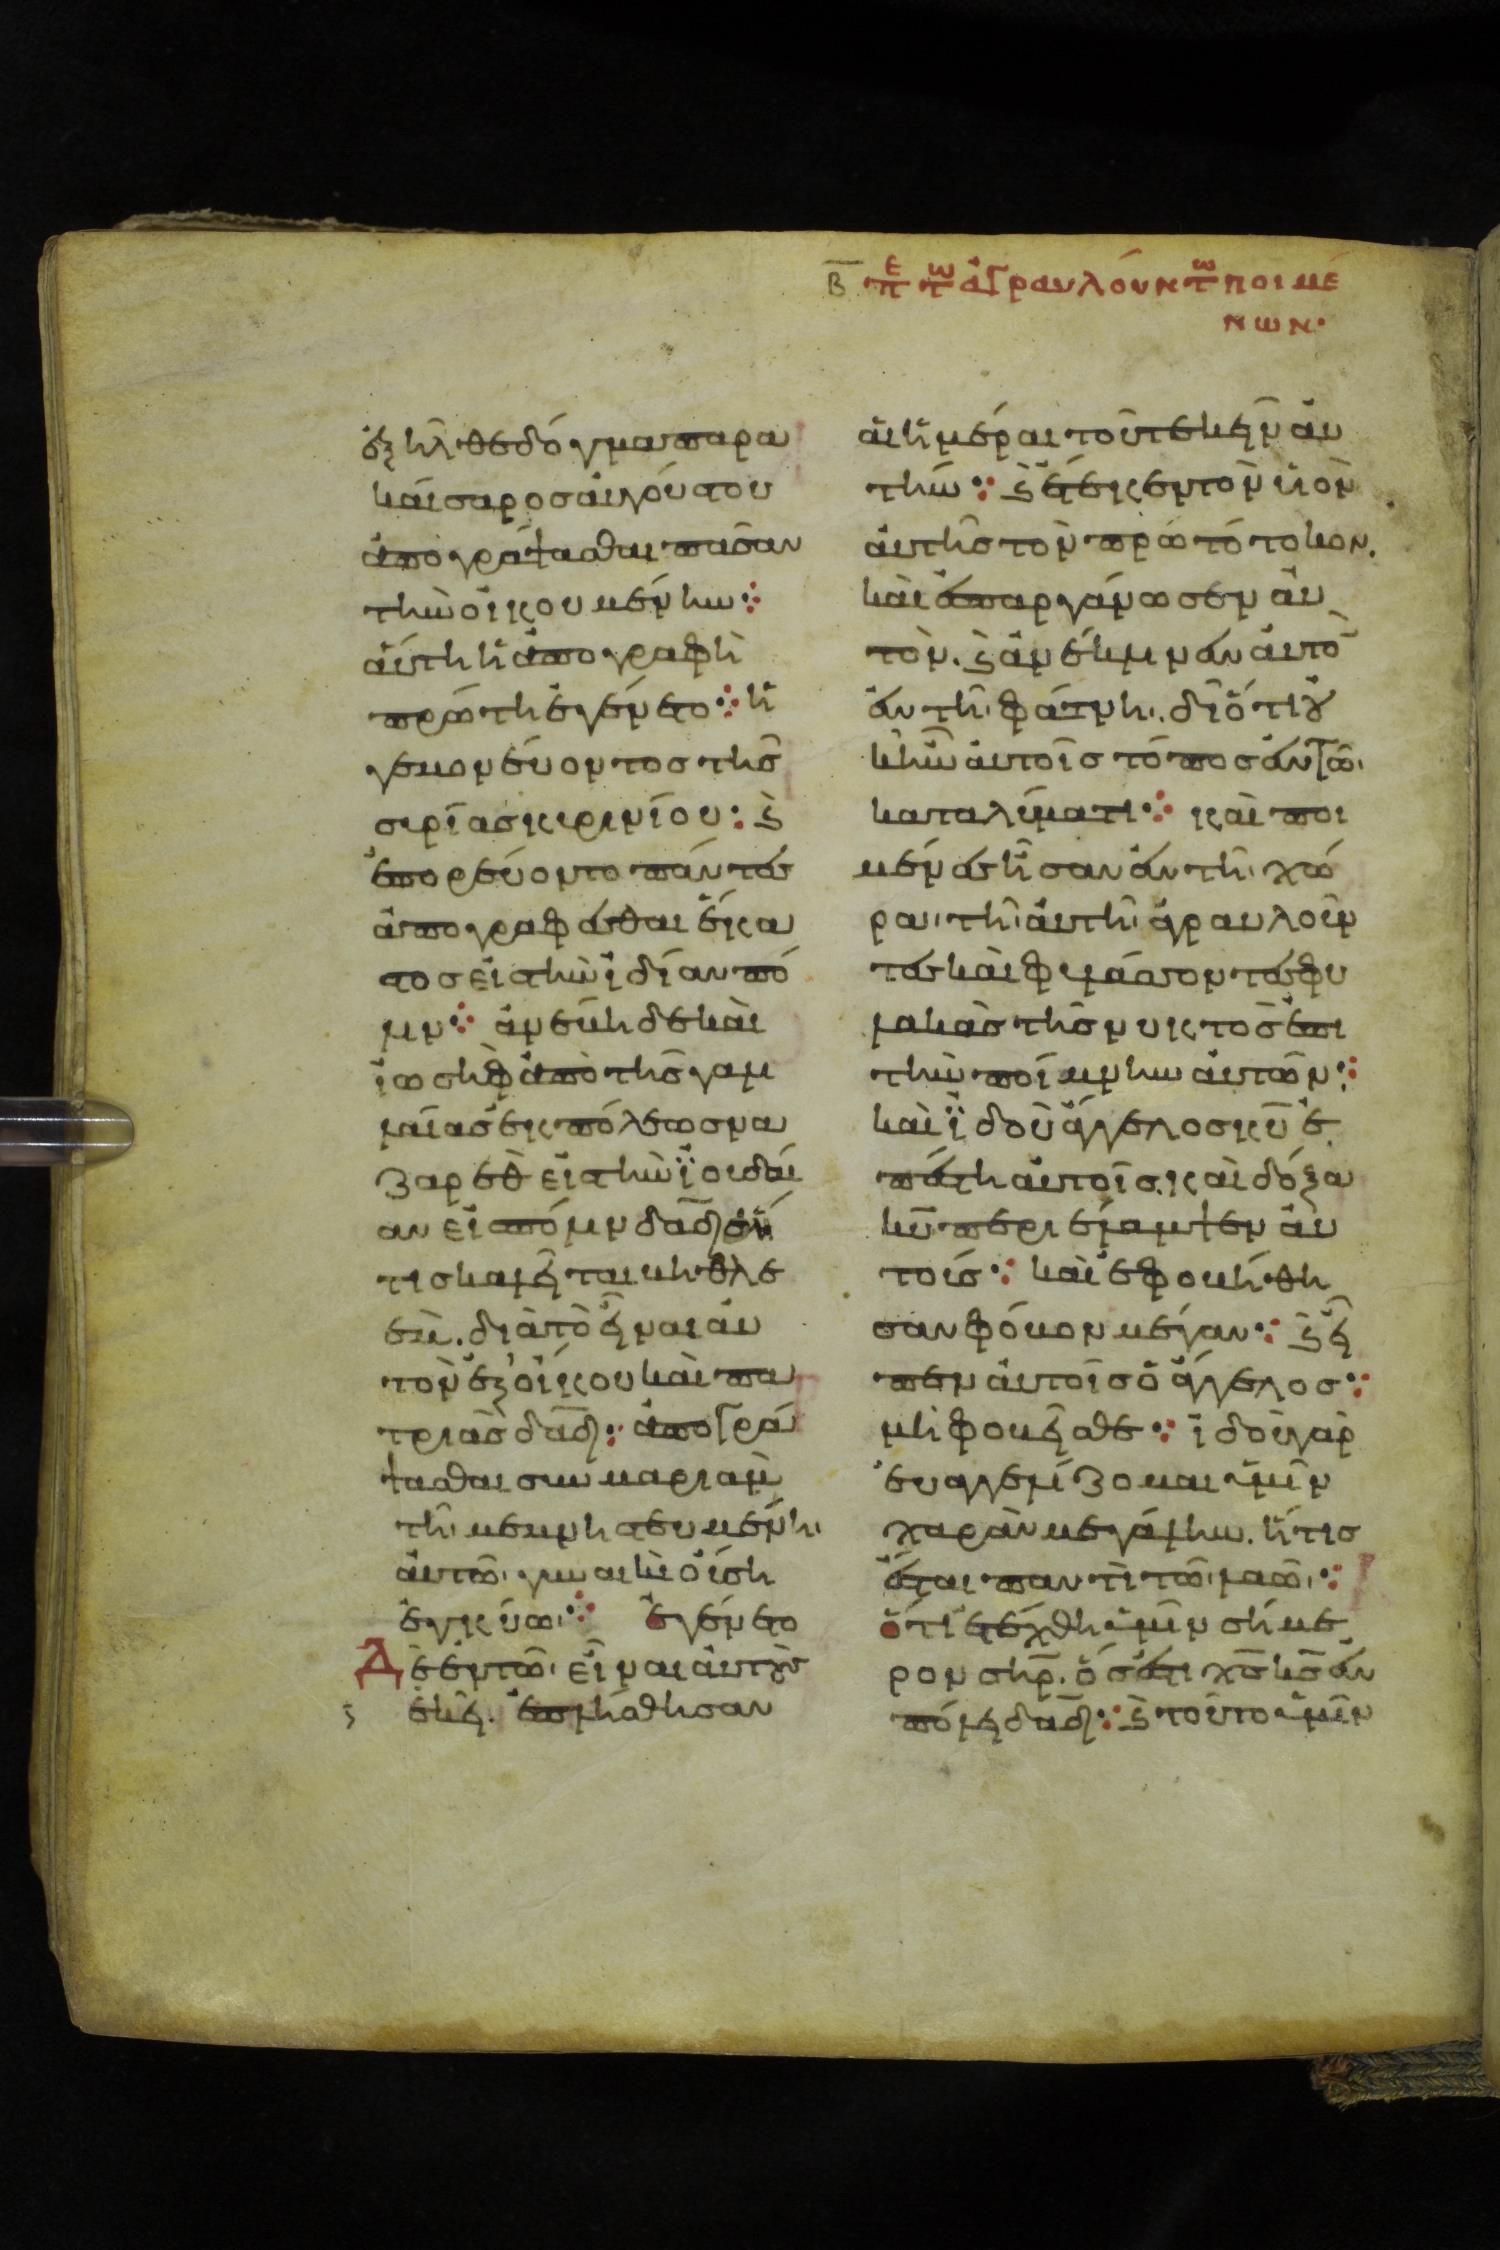 Β πε τω ἀγραυλούντω ποιμέ
νων·
ἐξῆλθε δόγμα παρα
καίσαρος αὐγούστου
ἀπογράψασθαι πᾶσαν
τὴν οἰκουμένην
ἁύτη ἡ ἀπογραφὴ
πρώτη ἐγένετο ἡ
γεμονέυοντος τῆς
συρίας κυρινίου κ
ἐπορέυοντο πάντες
ἀπογραφέσθαι ἕκα
στος εἰς τὴν ἰδίαν πό
λιν ἀνέβη δε και
ἰωσὴφ ἀπὸ τῆς γαλι
λαίας ἐκ πόλεως να
ζαρὲθ εἰς τὴν ἰουδαί
αν εἰς πόλιν δαδ ἥ
τις καλεῖται βηθλε
ὲμ. διὰ τὸ εἶναι ἀυ
τὸν ἐξ ὀίκου καὶ πα
τριᾶς δαδ ἀπογρά
ψασθαι συν μαριὰμ
τῆ μεμνηστευμένη
ἀυτῶ γυναικὶ ὄυση
ἐγκύω ἐγένετο
Δὲ ἐν τῶ εἶναι ἀυτοὺς
ἐκεῖ. ἐπλήσθησαν
ἁι ἡμέραι τοῦ τεκεῖν ἀυ
τήν κ ἔτεκεν τὸν υἱὸν
ἀυτῆς τὸν πρωτότοκον.
καὶ ἐσπαργάνωσεν ἀυ
τὸν. κ ἀνέκλινεν ἀυτὸ
ἐν τῆ φάτνη. διότι οὐ
κ ἦν ἀυτοῖς τόπος ἐν τῶ
καταλύματι καὶ ποι
μένες ἦσαν ἐν τῆ χώ
ρα τῆ ἀυτῆ ἀγραυλοῦν
τες καὶ φυλάσσοντες φυ
λακὰς τῆς νυκτὸς ἐπι
τὴν ποίμνην ἀυτῶν
καὶ ἰδοὺ ἄγγελος κυ ἐ
πέστη ἀυτοῖς. καὶ δόξα
κυ περιέλαμψεν ἀυ
τούς καὶ ἐφοβήθη
σαν φόβον μέγαν κ εἶ
πεν ἀυτοῖς ὁ ἄγγελος
μὴ φοβεῖσθε ἰδοὺ γὰρ
ἐυαγγελίζομαι ὑμῖν
χαρὰν μεγάλην. ἥτις
ἔσται παντὶ τῶ λαῶ
ὅτι ἐτέχθη ὑμῖν σήμε
ρον σηρ. ὅς ἐστι χς κς ἐν
πόλει δαδ κ τοῦτο ὑμῖν